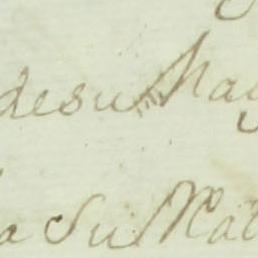 desu Mag
a Su Mat